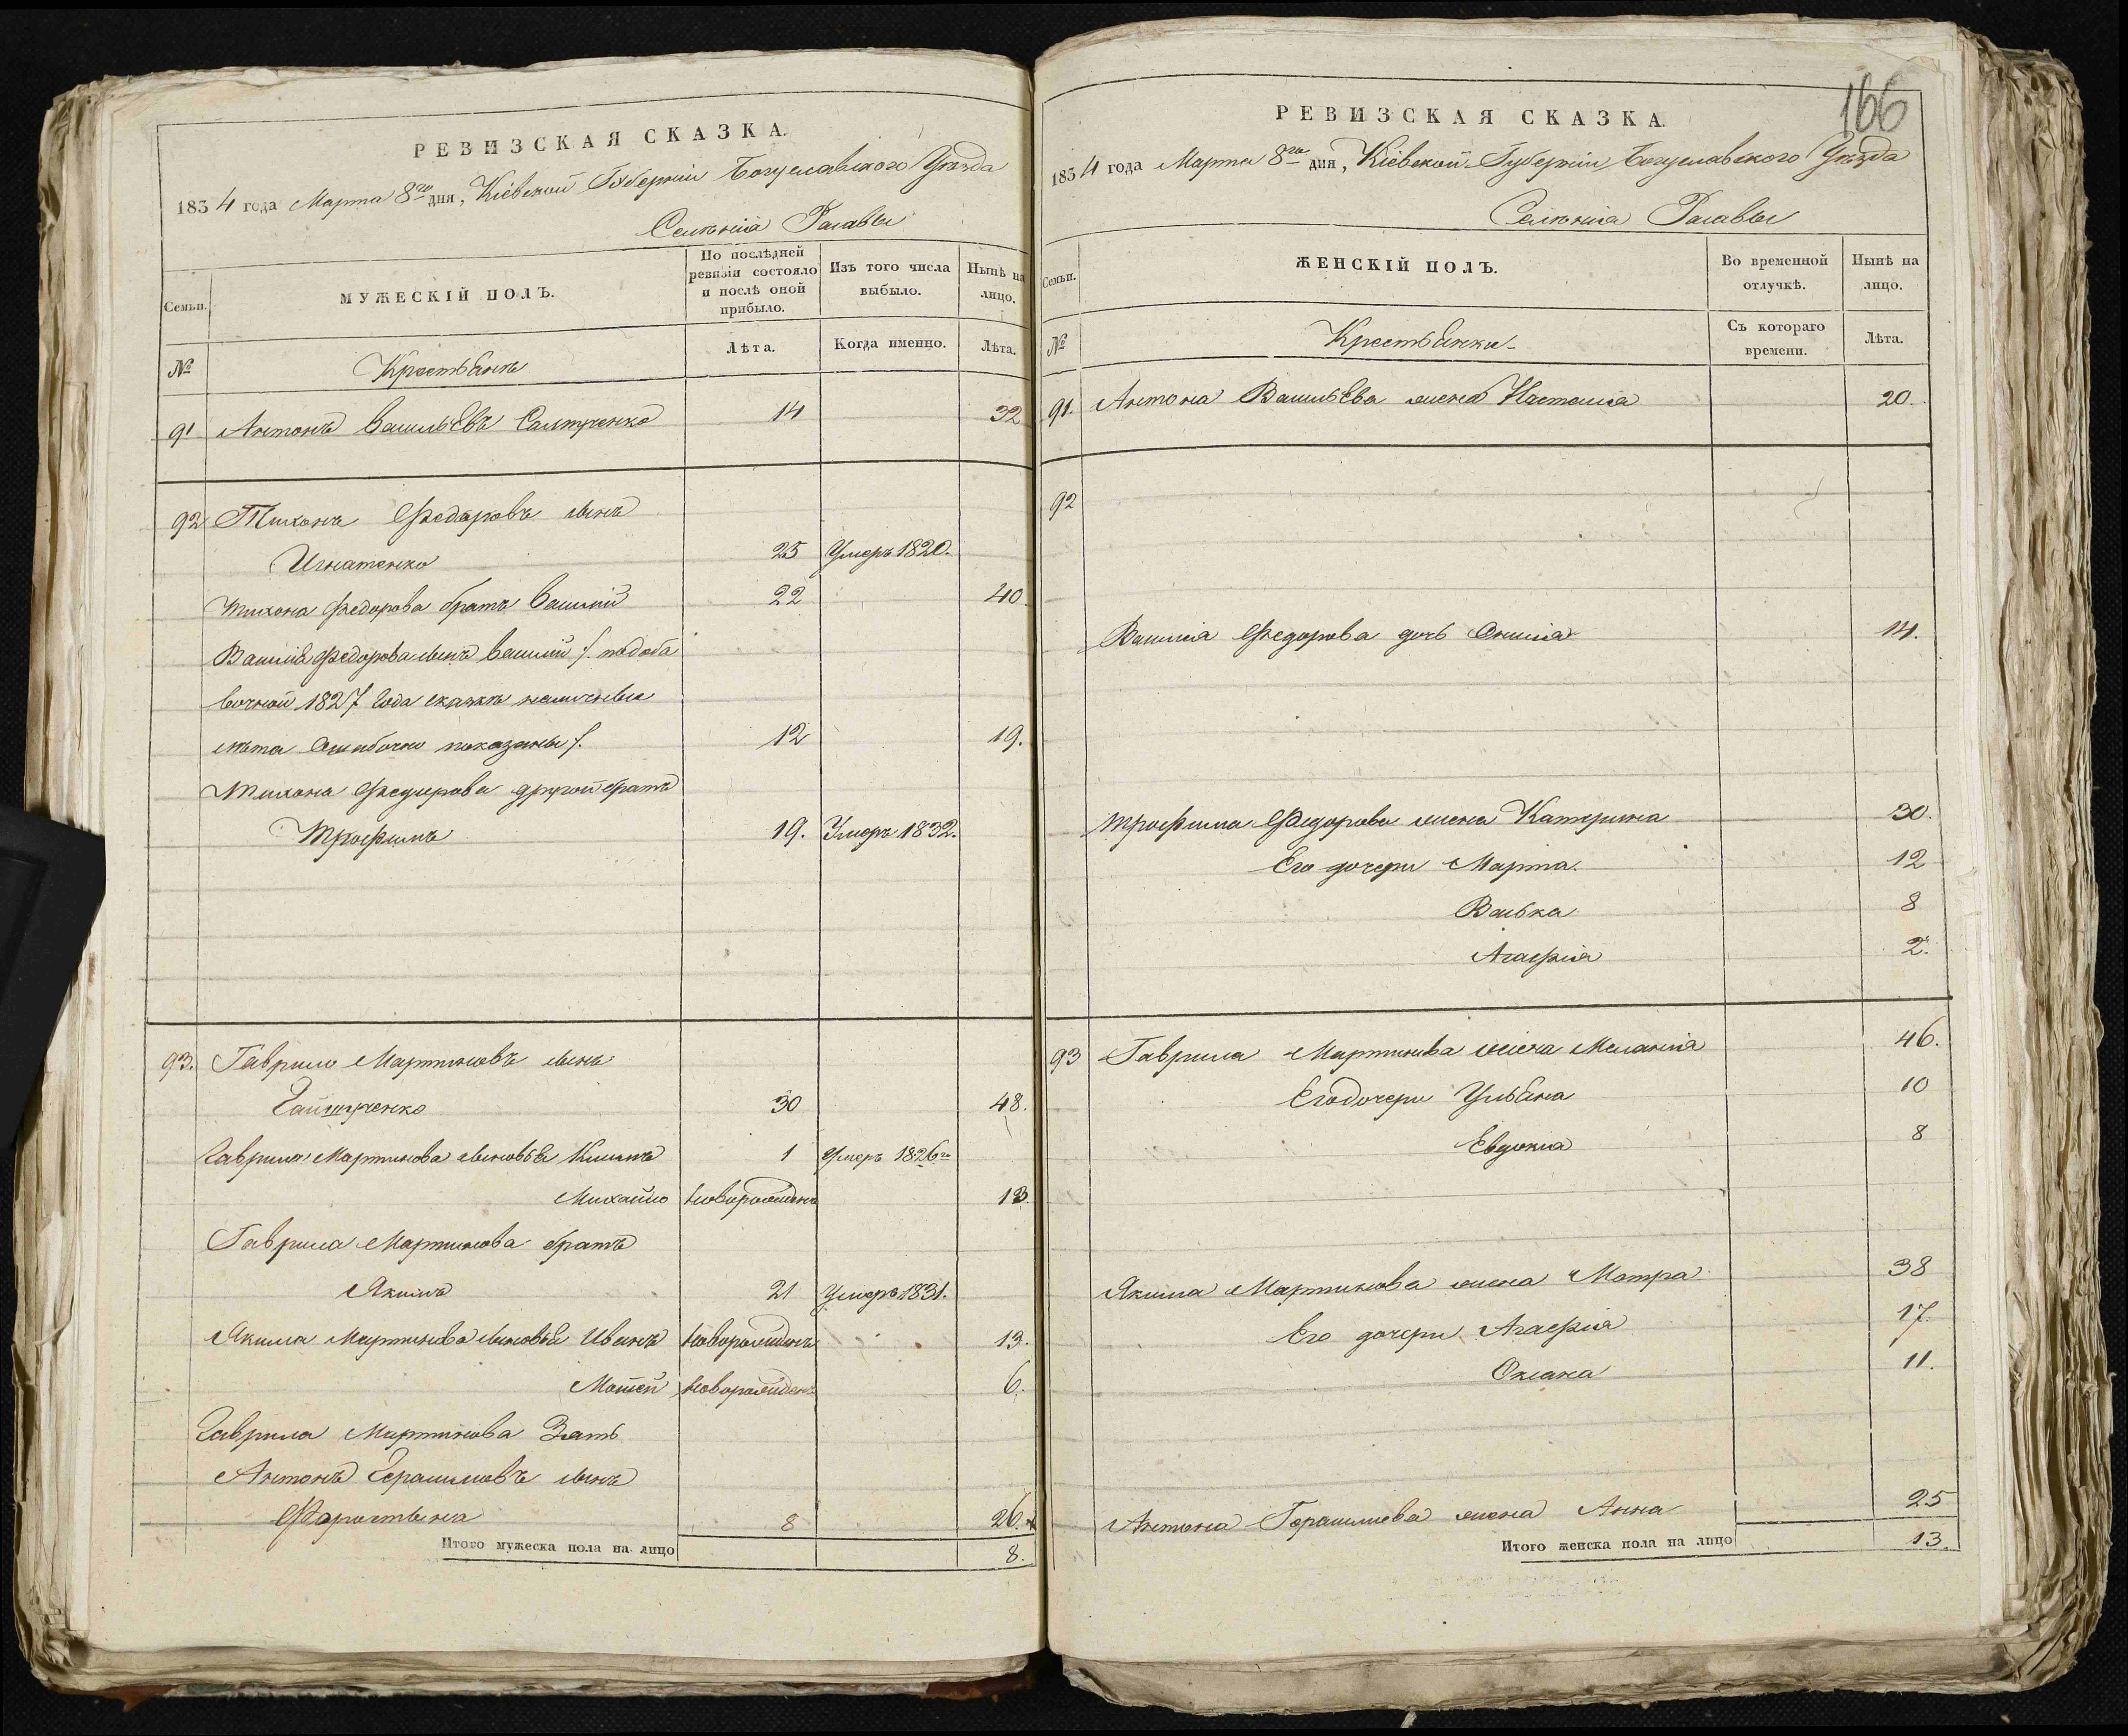 РЕВИЗСКАЯ СКАЗКА.
1834 года Марта 8го дня, Кіевской Губерніи Богуславского Уѣзда
Селѣнія Расавы
Семьи.
МУЖЕСКІЙ ПОЛЪ.
По послѣдней ревизіи состояло и послѣ оной прибыло.
Изъ того числа выбыло.
Нынѣ на лицо.
№
Крестьянѣ
Лѣта.
Когда именно.
Лѣта.
91 Антонъ Васильевъ 14 32
92 Тихонъ Федоровъ сынъ
Игнатенко 25 Умеръ 1820.
Тихона Федорова братъ Василій 22 40.
Василія Федорова сынъ Василій /. по доба
вочной 1827 Года сказкѣ наличные
лѣта ошибочно показаны /. 12 19.
Тихона Федорова другой братъ
Трофимъ 19. Умеръ 1832.
93. Гаврило Мартиновъ сынъ
30 48.
Гаврила Мартинова сыновья Климъ 1 Умеръ 1826го
Михайло новорожденъ 13.
Гаврила Мартинова братъ
Якимъ 21 Умеръ 1831.
Якима Мартинова сыновья Иванъ новорожденъ 13.
Мойсей новорожденъ 6.
Гаврила Мартинова Зять
Антонъ Герасимовъ сынъ
8 26.
Итого мужеска пола на лицо 8.
166
РЕВИЗСКАЯ СКАЗКА.
1834 года Марта 8го дня, Кіевской Губерніи Богуславского Уѣзда
Селѣнія Расавы
Семьи.
ЖЕНСКІЙ ПОЛЪ.
Во временной отлучкѣ.
Нынѣ на лицо.
№
Крестьянки
Съ котораго времени.
Лѣта.
91. Антона Васильева жена Настасія 20.
92
Василія Федорова дочь 14.
Трофима Федорова жена Катерина 30.
Его дочери Марта. 12
Васька 8
Агафія 2.
93 Гаврила Мартинова жена Меланія 46.
Его дочери Ульяна 10
Евдокія 8
Якима Мартинова жена Мотра 38
Его дочери Агафія 17.
Оксана 11.
Антона Герасимова жена Анна 25
Итого женска пола на лицо 13.